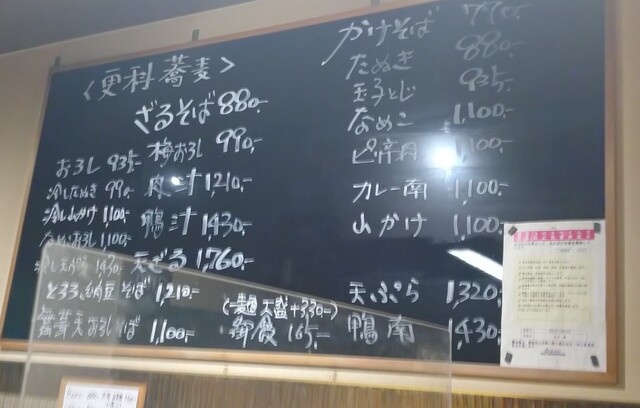 〈更科蕎麦〉
ざるそば 880.-
おろし 935.-
梅おろし 990.-
冷したぬき 990.-
肉汁 1,210.-
冷し山かけ 1,100.-
鴨汁 1430.-
なめこおろし 1,100.-
天ざる 1,760.-
冷し天ぷら 1430.-
とろろ、納豆そば 1,210.-
天おろしそば 1,100.-
(一麺 大盛+330-)
御飯 165.-
かけそば 770.-
たぬき 880.-
玉子とじ 935.-
なめこ 1,100.-
ピ辛肉 1,100.-
カレー南 1,100.-
山かけ 1,100.-
天ぷら 1,320.-
鴨南 1,430.-